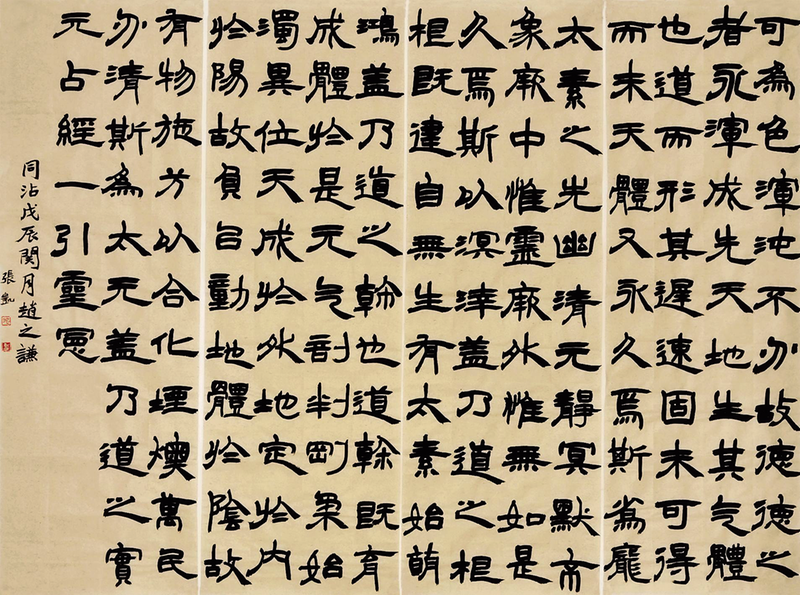 可為色渾沌不分故德德之
者永渾成先天地生其气體
也道而形其遲速固未可得
而未天體又永久焉斯為龐
太素之先幽清元靜冥默帝
象厥中惟靈厥外惟無如是
久焉斯以溟涬蓋乃道之根
根既建自無生有太素始萌
鴻蓋乃道之幹也道幹既育
成體於是元气剖判剛柔始
濁異位天成於外地定於內
於陽故員㠯動地體於陰故
有物施方以合化堙燠萬民
分清斯為太元蓋乃道之實
元占經一引靈憲
同沾戊辰閏月趙之謙
張凱